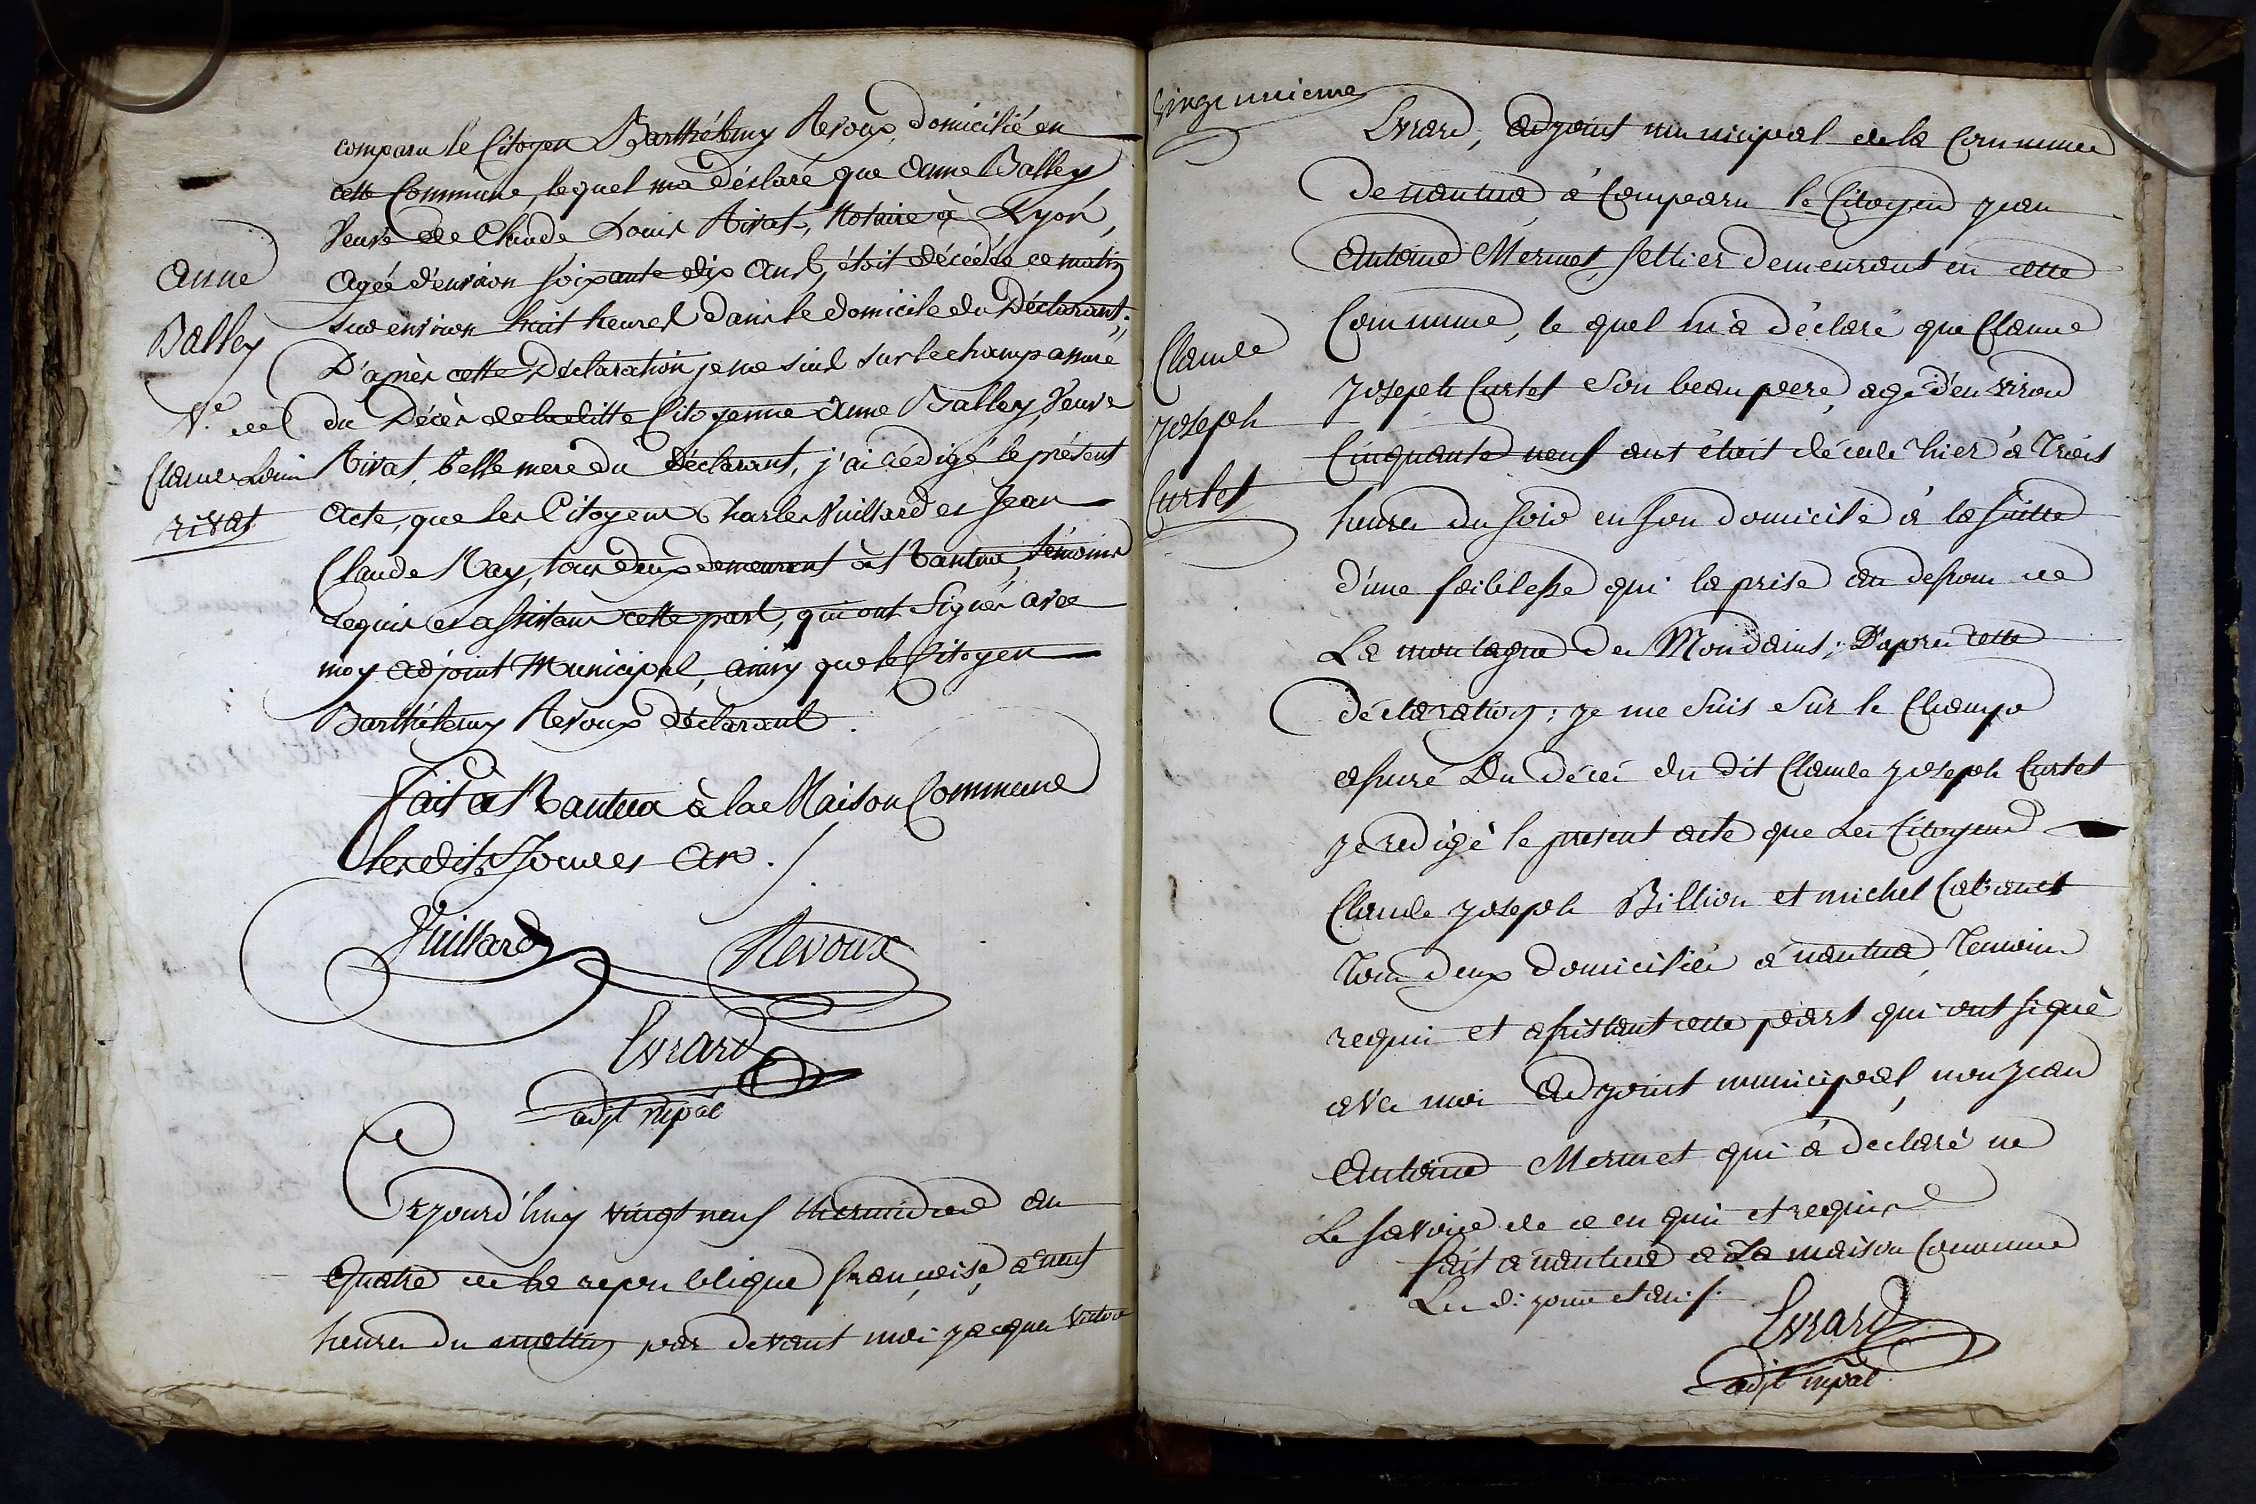 comparu le Citoyen Barthélemy Revoux, domicilié en
cette Commune, lequel ma déclaré que Anne Balley
Veuve de Claude Louis Rivat, Notaire à Lyon,
Agée d'environ soixante dix ans, étoit décédée ce matin
sur environ huit heures dans le domicile du Déclarant;
D'après cette Déclaration je me suis sur le champ assuré
du Décès de laditte Citoyenne Anne Balley, Veuve
Rivat, belle mere du Déclarant, j'ai rédigé le présent
Acte, que les Citoyens Charles Vuillard et Jean
Claude May, tous deux demeurant à Nantua, témoins
requis et assistans cette part, qui ont signés avec
moy adjoint Municipal, ainsy que le Citoyen
Barthélemy Revoux déclarant.
Fait à Nantua à la Maison Commune
lesdits Jour et An ./.
Anne
Balley
Ve. de
Claude Louis
rivat
Vuillard
Revoux
Evrard
adjt mpal
Cejourd'huy vingt neuf thermidor an
Quatre de la republique françoise à neuf
heures du mattin par devant moi jacques victor
vingt unieme
Evrard, adjoint municipal de la Commune
de nantua à Comparu le Citoyen jean
Antoine Mermet, sellier demeurant en cette
Commune, le quel m'à déclaré que Claude
joseph Curtet son beau pere, agé d'environ
Cinquante neuf ans étoit décédé hier à trois
heures du soir en son domicile à la suitte
d'une faiblesse qui la prise au dessous de
La montagne des Mondains; D'apres cette
déclaration; je me suis sur le Champ
assuré Du décés du dit Claude joseph Curtet
je redigé le present acte que Les Citoyens
Claude joseph Billion et michel Cabanet
tous deux domiciliés à nantua, temoins
requis et assistant cette part qui ont signé
avec moi Adjoint municipal, non jean
Antoine Mermet qui à déclaré ne
Le savoir de ce enquis et requis
fait à nantua à La maison Commune
Les d. jour et an ./.
Claude
joseph
Curtet
Evrard
adjt mpal